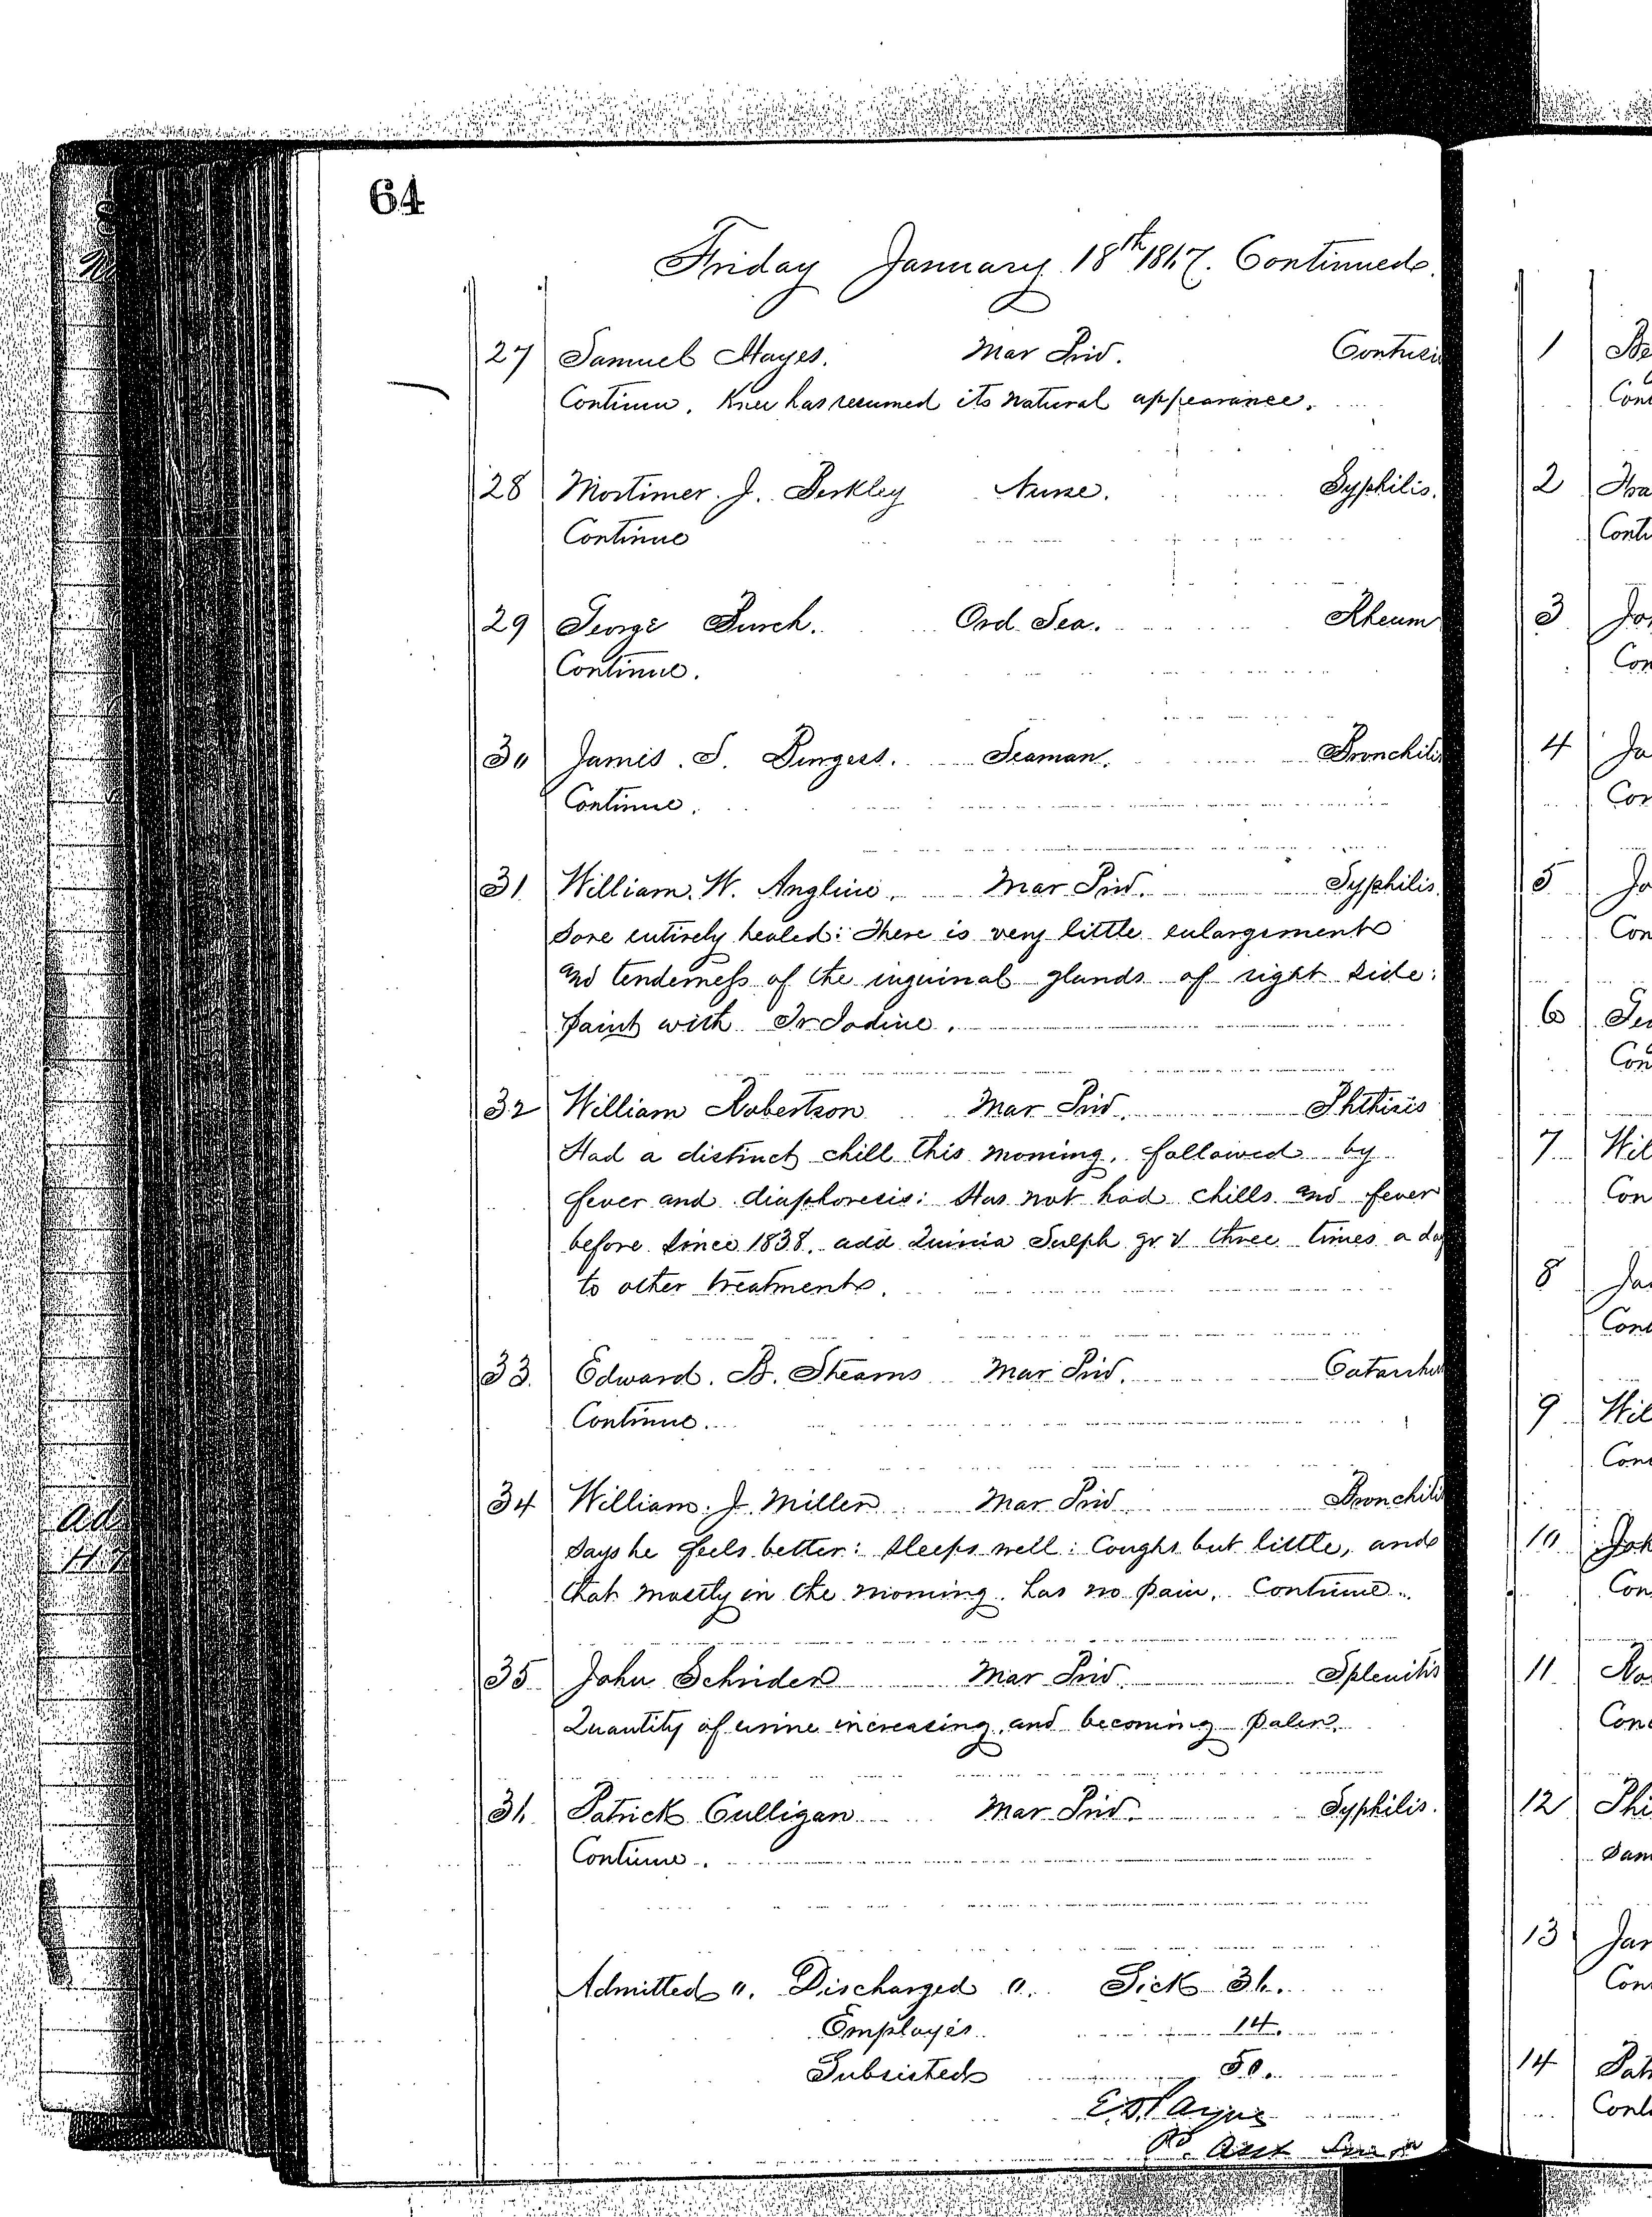 64
Friday January 18th 1867. Continued.
27 Samuel Hayes. Mar Priv. Contusi
Continue. Knee has resumed its natural appearance.
28 Mortimer. J. Berkley Nurse. Syphilis.
Continue
29 George Burch. Ord. Sea. Rheum
Continue.
30 James. S. Burgess. Seaman. Bronchitis
Continue.
31 William. W. Angline. Mar Priv. Syphilis.
Sore entirely healed: There is very little enlargement
and tenderness of the inguinal glands of right side:
paint with Tr Iodine.
32 William Robertson Mar Priv. Phthisis
Had a distinct chill this morning, followed by
fever and diaphoresis: Has not had chills and fever
before since 1838. add Quinia Sulph gr v three times a day
to other treatment.
33. Edward. B. Stearns Mar Priv. Catarrhu
Continue.
34 William. J. Miller Mar Priv. Bronchitis
Says he feels better: Sleeps well: Coughs but little, and
that mostly in the morning. has no pain. Continue.
35 John Schrider Mar Priv. Splenitis
Quantity of urine increasing, and becoming paler.
36. Patrick Culligan Mar Priv. Syphilis.
Continue.
Admitted 0. Discharged 0. Sick 36.
Employés 14.
Subsisted 50.
E D Payne
Asst Sur
1 Be
Con
2
Conti
3 Jo
Con
4 Ja
Con
5 Jo
Con
6 Ge
Con
7 Wil
Con
8 Ja
Con
9 Wil
Con
10 Joh
Con
11 Ro
Con
12 Phi
Sam
13 Jam
Con
14 Pat
Cont
Ad